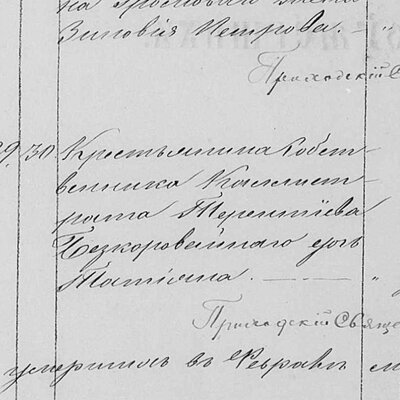 на
Зиновія Петрова. — "
Приходскій С
29. 30 Крестьянина Собст-
венника Каллист-
рата Терентіева
Безкоровайнаго дочь
Татіана. — "
Приходскій Свяще
умершихъ въ Февралѣ м